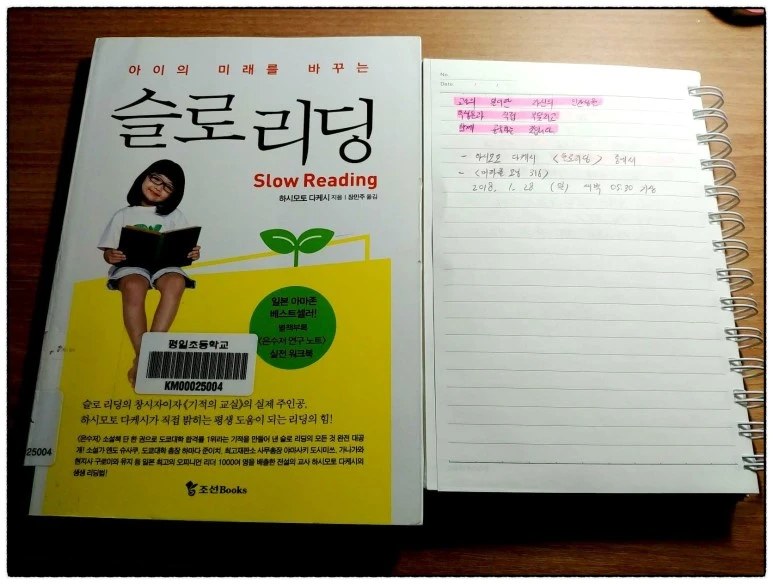 아이의 미래를 바꾸는
슬로 리딩
Slow Reading
하시모토 다케시 지음 | 장민주 옮김
일본 아마존
베스트셀러!
별책부록
〈은수저 연구 노트〉
실전 워크북
평일초등학교
KM00025004
25004
슬로 리딩의 창시자이자 《기적의 교실》의 실제 주인공,
하시모토 다케시가 직접 밝히는 평생 도움이 되는 리딩의 힘!
〈은수저〉 소설책 단 한 권으로 도쿄대학 합격률 1위라는 기적을 만들어 낸 슬로 리딩의 모든 것 완전 대공
개! 소설가 엔도 슈사쿠, 도쿄대학 총장 하마다 준이치, 최고재판소 사무총장 야마사키 도시미쓰, 가나가와
현지사 구로이와 유지 등 일본 최고의 오피니언 리더 1000여 명을 배출한 전설의 교사 하시모토 다케시의
생생 리딩법!
조선Books
No.
Date
교사의 자신의 인간성을
학생들과 직접
함께
- 하시모토 다케시 〈슬로리딩〉 중에서
- 〈 316〉
2018. 1. 28 (일) 새벽 05:30